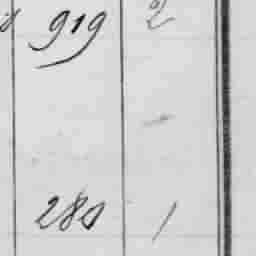 919 2
280 1